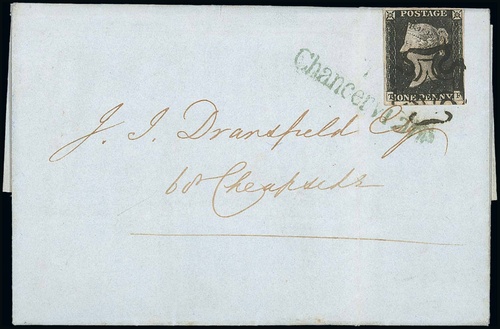 POSTAGE
T E
ONE PENNY
Chancery Lane
J. J. Dransfield Esq
60 Cheapside